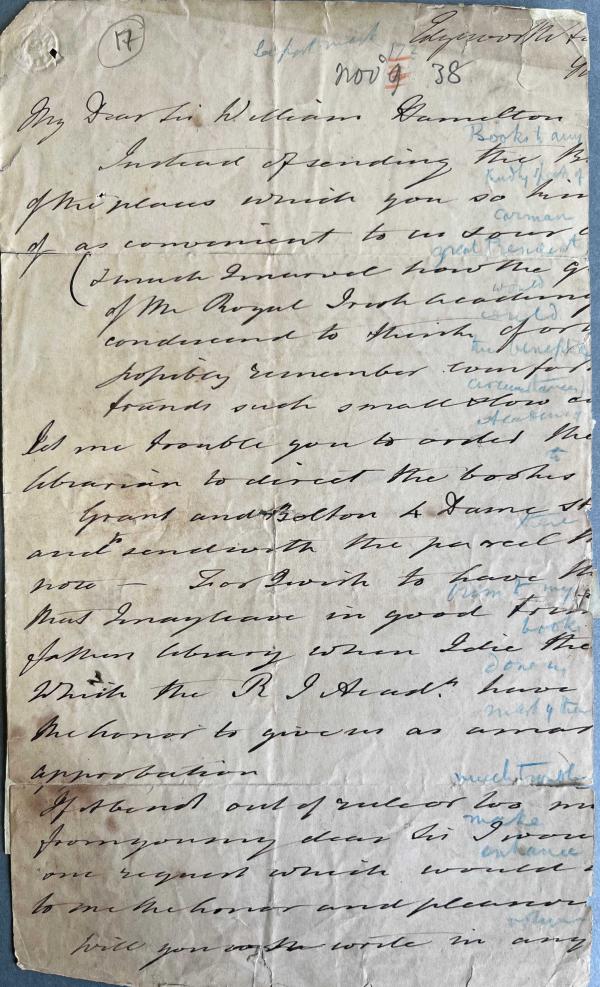 17
See post mark
Nov 9 38
My Dear Sir William Hamilton
Books to any
Instead of sending the
kindly speak of
of the places which you so kin
carman
of as convenient to us your
great President
(I much I marvel how the g
would
of the Royal Irish Academy
could
condescend to think of or
the benefit
possibly remember
circumstances
friends such small slow
Academy
Let me trouble you to order the
to
librarian to direct the books
Grant and Bolton 4 Dame St
here
and to send with the parcel
from to my
now — For I wish to have th
that I may leave in good
books
fathers library when I die the
done us
Which the R I Acad.y have
mark of their
the honor to give us as a mar
approbation
much trouble
If it be not out of rule or too mu
make
from you my dear Sir I wou
enhance
one request which would
to me the honor and pleasure
Will you write in any